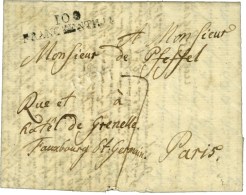 100
FRANCKENTHAL
Monsieur Monsieur
de Pfeffel
Rue et à
hôtel de Grenelle
Fauxbourg St. Germain.
Paris.